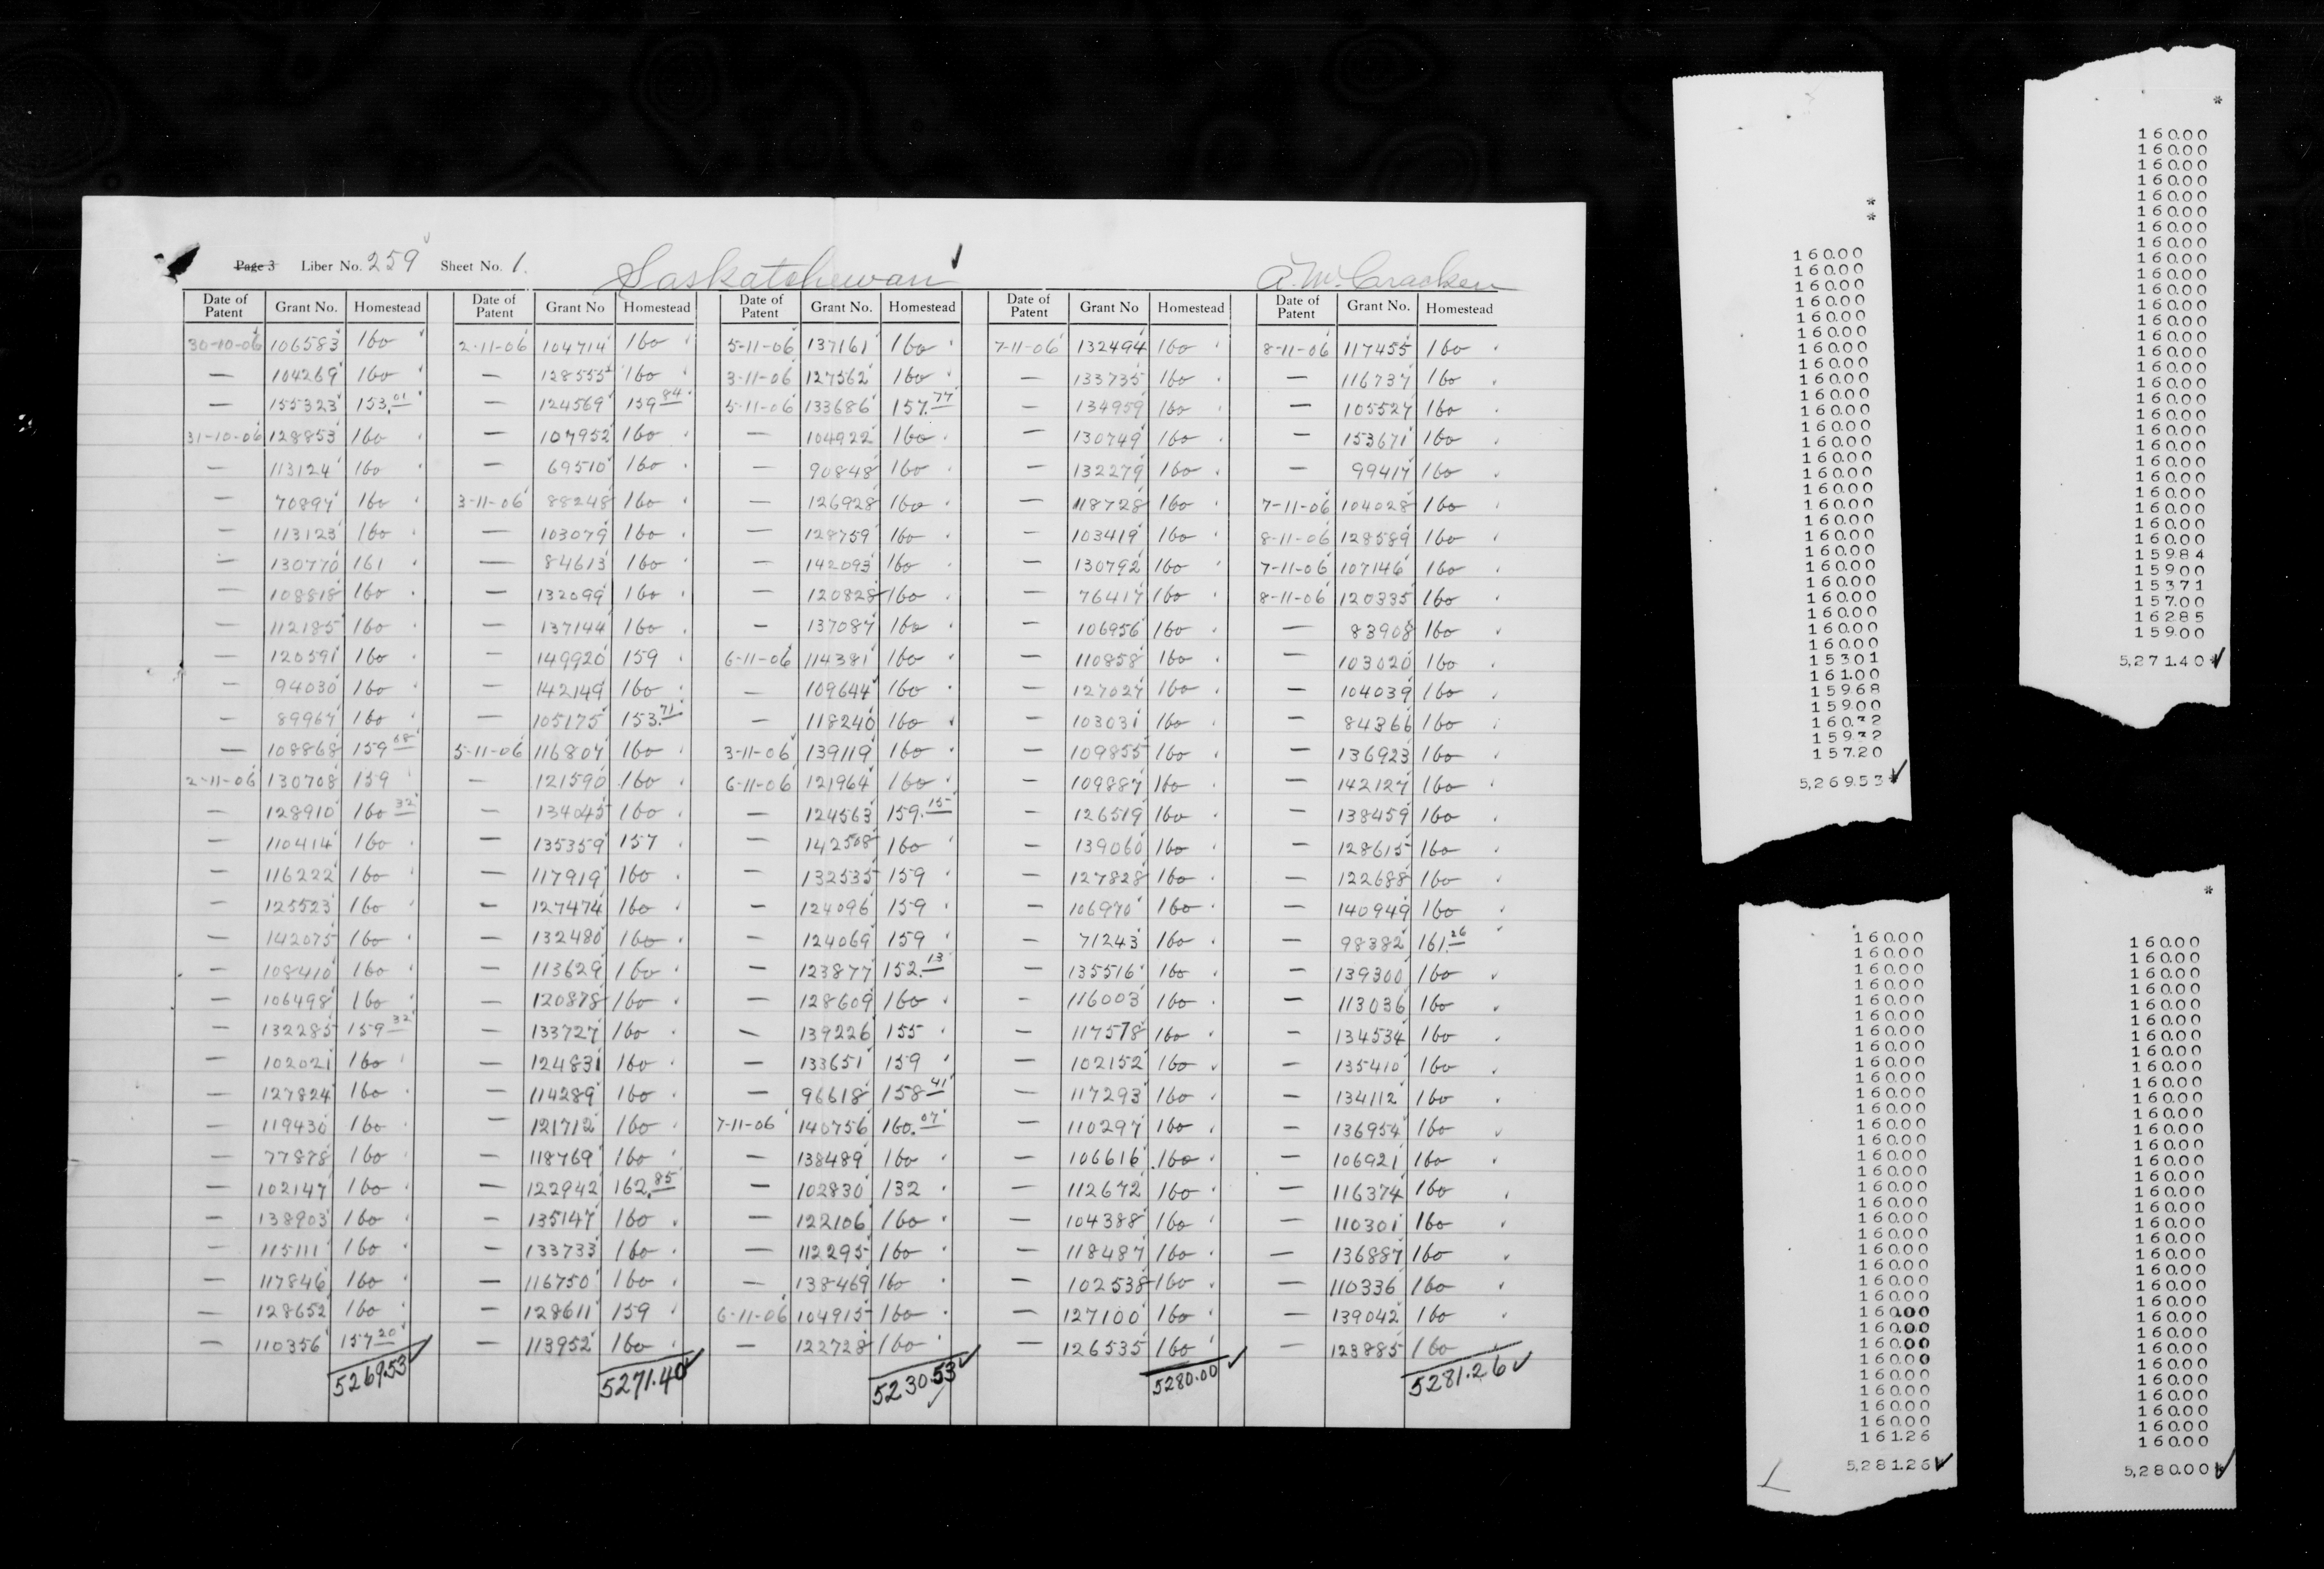 Page 3 Liber No. 259 Sheet No. 1. Saskatchewan A. McCracken
Date of Patent Grant No. Homestead Date of Patent Grant No Homestead Date of Patent Grant No. Homestead Date of Patent Grant No Homestead Date of Patent Grant No. Homestead
30-10-06 106583 160 2-11-06 104714 160 5-11-06 137161 160 7-11-06 132494 160 8-11-06 117455 160
— 104269 160 — 128555 160 3-11-06 127562 160 — 133735 160 — 116737 160
— 155323 153.01 — 124569 159.84 5-11-06 133686 157.77 — 134959 160 — 105527 160
31-10-06 128853 160 — 107952 160 — 104922 160 — 130749 160 — 153671 160
— 113124 160 — 69510 160 — 90848 160 — 132279 160 — 99417 160
— 70897 160 3-11-06 88248 160 — 126928 160 — 118728 160 7-11-06 104028 160
— 113123 160 — 103079 160 — 128759 160 — 103419 160 8-11-06 128589 160
— 130770 161 — 84613 160 — 142093 160 — 130792 160 7-11-06 107146 160
— 108818 160 — 132099 160 — 120828 160 — 76417 160 8-11-06 120335 160
— 112185 160 — 137144 160 — 137087 160 — 106956 160 — 83908 160
— 120591 160 — 149920 159 6-11-06 114381 160 — 110858 160 — 103020 160
— 94030 160 — 142149 160 — 109644 160 — 127027 160 — 104039 160
— 89967 160 — 105175 153.71 — 118240 160 — 103031 160 — 84366 160
— 108868 159.68 5-11-06 116807 160 3-11-06 139119 160 — 109855 160 — 136923 160
2-11-06 130708 159 — 121590 160 6-11-06 121964 160 — 109887 160 — 142127 160
— 128910 160.32 — 134045 160 — 124563 159.15 — 126519 160 — 138459 160
— 110414 160 — 135359 157 — 142508 160 — 139060 160 — 128615 160
— 116222 160 — 117919 160 — 132535 159 — 127828 160 — 122688 160
— 125523 160 — 127474 160 — 124096 159 — 106970 160 — 140949 160
— 142075 160 — 132480 160 — 124069 159 — 71243 160 — 98382 161.26
— 108410 160 — 113629 160 — 123877 152.13 — 135516 160 — 139300 160
— 106498 160 — 120878 160 — 128609 160 — 116003 160 — 113036 160
— 132285 159.32 — 133727 160 — 139226 155 — 117578 160 — 134534 160
— 102021 160 — 124831 160 — 133651 159 — 102152 160 — 135410 160
— 127824 160 — 114289 160 — 96618 158.41 — 117293 160 — 134112 160
— 119430 160 — 121712 160 7-11-06 140756 160.07 — 110297 160 — 136954 160
— 77878 160 — 118769 160 — 138489 160 — 106616 160 — 106921 160
— 102147 160 — 122942 162.85 — 102830 132 — 112672 160 — 116374 160
— 138903 160 — 135147 160 — 122106 160 — 104388 160 — 110301 160
— 115111 160 — 133733 160 — 112295 160 — 118487 160 — 136887 160
— 117846 160 — 116750 160 — 138469 160 — 102538 160 — 110336 160
— 128652 160 — 128611 159 6-11-06 104915 160 — 127100 160 — 139042 160
— 110356 157.20 — 113952 160 — 122728 160 — 126535 160 — 123885 160
5269.53 5271.40 5230.53 5280.00 5281.26
*
*
160.00
160.00
160.00
160.00
160.00
160.00
160.00
160.00
160.00
160.00
160.00
160.00
160.00
160.00
160.00
160.00
160.00
160.00
160.00
160.00
160.00
160.00
160.00
160.00
160.00
160.00
153.01
161.00
159.68
159.00
160.32
159.32
157.20
5,269.53
*
160.00
160.00
160.00
160.00
160.00
160.00
160.00
160.00
160.00
160.00
160.00
160.00
160.00
160.00
160.00
160.00
160.00
160.00
160.00
160.00
160.00
160.00
160.00
160.00
160.00
160.00
160.00
159.84
159.00
153.71
157.00
162.85
159.00
5,271.40*
160.00
160.00
160.00
160.00
160.00
160.00
160.00
160.00
160.00
160.00
160.00
160.00
160.00
160.00
160.00
160.00
160.00
160.00
160.00
160.00
160.00
160.00
160.00
160.00
160.00
160.00
160.00
160.00
160.00
160.00
160.00
160.00
161.26
5,281.26
*
160.00
160.00
160.00
160.00
160.00
160.00
160.00
160.00
160.00
160.00
160.00
160.00
160.00
160.00
160.00
160.00
160.00
160.00
160.00
160.00
160.00
160.00
160.00
160.00
160.00
160.00
160.00
160.00
160.00
160.00
160.00
160.00
160.00
5,280.00